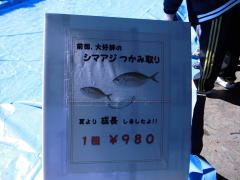 前回、大好評の
シマアジつかみ取り
夏より 成長 しましたよ!!
1回 ¥980